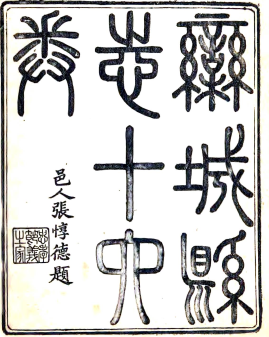 欒城縣
志十六
卷
邑人張惇德題